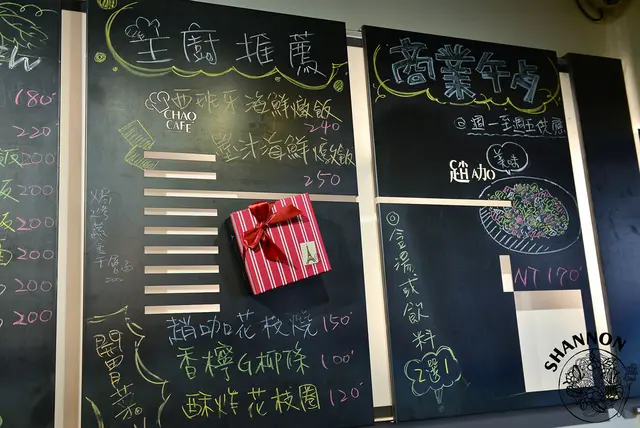 180
220
200
200
200
200
200
主廚推薦
CHAO
CAFE
西班牙海鮮燉飯
240
墨汁海鮮燉飯
250
開胃菜
趙咖花枝燒 150
香檸G柳條 100
酥炸花枝圈 120
商業午歺
◎週一至週五供應
美味
趙咖
NT 170
◎含湯或飲料
2選1
SHANNON